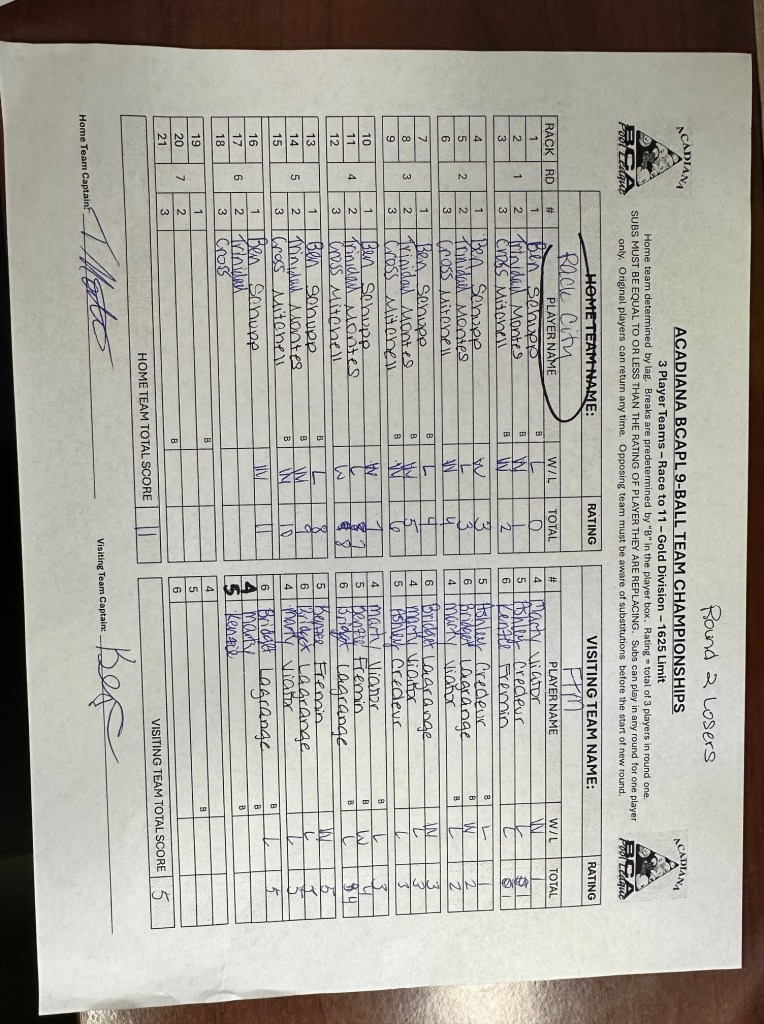 Round 2 Losers
ACADIANA
BCA
Pool League
ACADIANA BCAPL 9-BALL TEAM CHAMPIONSHIPS
3 Player Teams – Race to 11 – Gold Division – 1625 Limit
ACADIANA
BCA
Pool League
Home team determined by lag. Breaks are predetermined by "B" in the player box. Rating = total of 3 players in round one.
SUBS MUST BE EQUAL TO OR LESS THAN THE RATING OF PLAYER THEY ARE REPLACING. Subs can play in any round for one player
only. Original players can return any time. Opposing team must be aware of substitutions before the start of new round.
HOME TEAM NAME: RATING VISITING TEAM NAME: RATING
Rack City
RACK RD # PLAYER NAME W/L TOTAL # PLAYER NAME W/L TOTAL
1 1 Ben Schupp B L 0 4 Marty Viator W 1
2 1 2 Trinidad Montes B W 1 5 Ashley Credeur L 1
3 3 Cross Mitchell B W 2 6 Kenzie Fremin L 1
4 1 Ben Schupp W 3 5 Ashley Credeur B L 1
5 2 2 Trinidad Montes L 3 6 Bridget Lagrange B W 2
6 3 Cross Mitchell W 4 4 Marty Viator B L 2
7 1 Ben Schupp B L 4 6 Bridget Lagrange W 3
8 3 2 Trinidad Montes B W 5 4 Marty Viator L 3
9 3 Cross Mitchell B W 6 5 Ashley Credeur L 3
10 1 Ben Schupp W 7 4 Marty Viator B L 3
11 4 2 Trinidad Montes L 7 5 Kenzie Fremin B W 4
12 3 Cross Mitchell W 8 6 Bridget Lagrange B L 4
13 1 Ben Schupp B L 8 5 Kenzie Fremin W 5
14 5 2 Trinidad Montes B W 9 6 Bridget Lagrange L 5
15 3 Cross Mitchell B W 10 4 Marty Viator L 5
16 1 Ben Schupp W 11 6 Bridget Lagrange B L 5
17 6 2 Trinidad 4 Marty B
18 3 Cross 5 Kenzie B
19 1 B 4 B
20 7 2 B 5
21 3 6
HOME TEAM TOTAL SCORE 11 VISITING TEAM TOTAL SCORE 5
Home Team Captain: Visiting Team Captain: